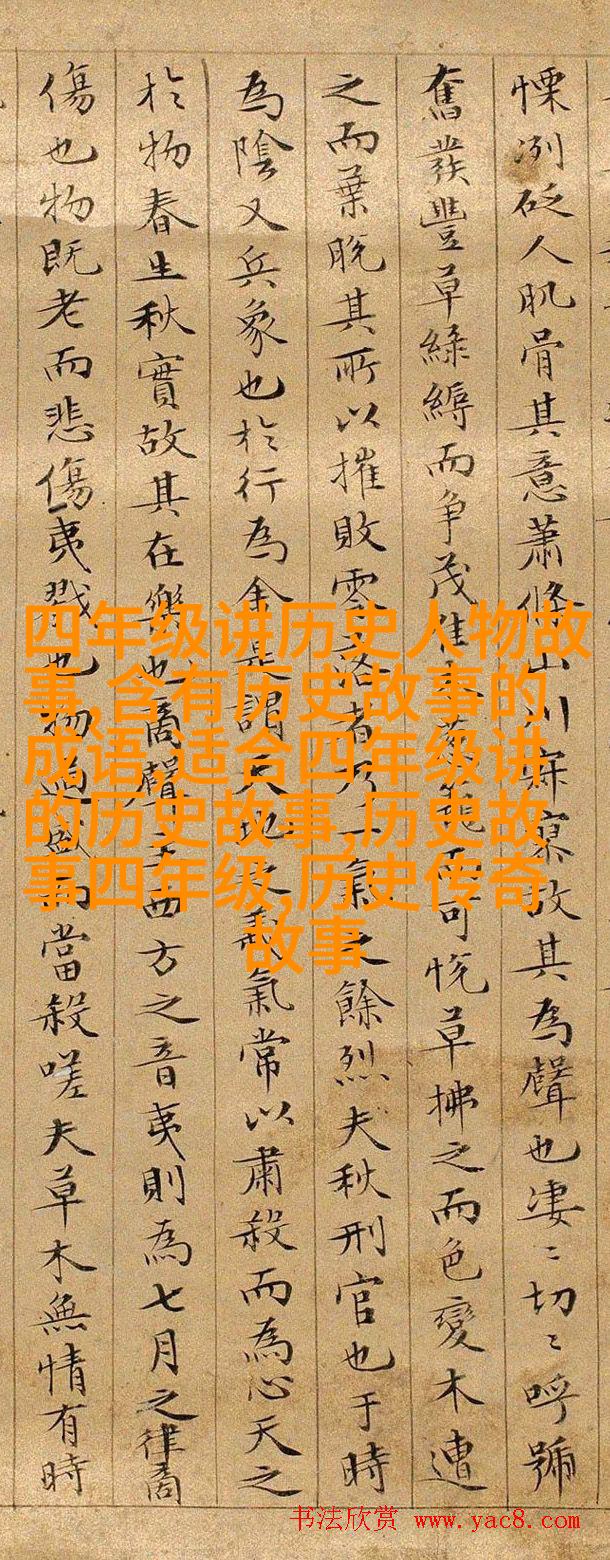 慄冽砭人肌骨其意蕭條山川寂寥故其為聲也淒〻切〻呼號
奮發豐草綠縟而爭茂佳木蔥蘢而可悅草拂之而色變木遭
之而葉脫其所以摧敗零落者乃一氣之餘烈夫秋刑官也于時
為陰又兵象也於行為金是謂天地之義氣常以肅殺而為心天之
於物春生秋實故其在樂也商聲主西方之音夷則為七月之律商
傷也物既老而悲傷夷戮也物過盛而當殺嗟夫草木無情有時
四年级讲历史人物故
事,含有历史故事的
成语,适合四年级讲
的历史故事,历史故
事四年级,历史传奇
故事
书法欣赏 www.yac8.com